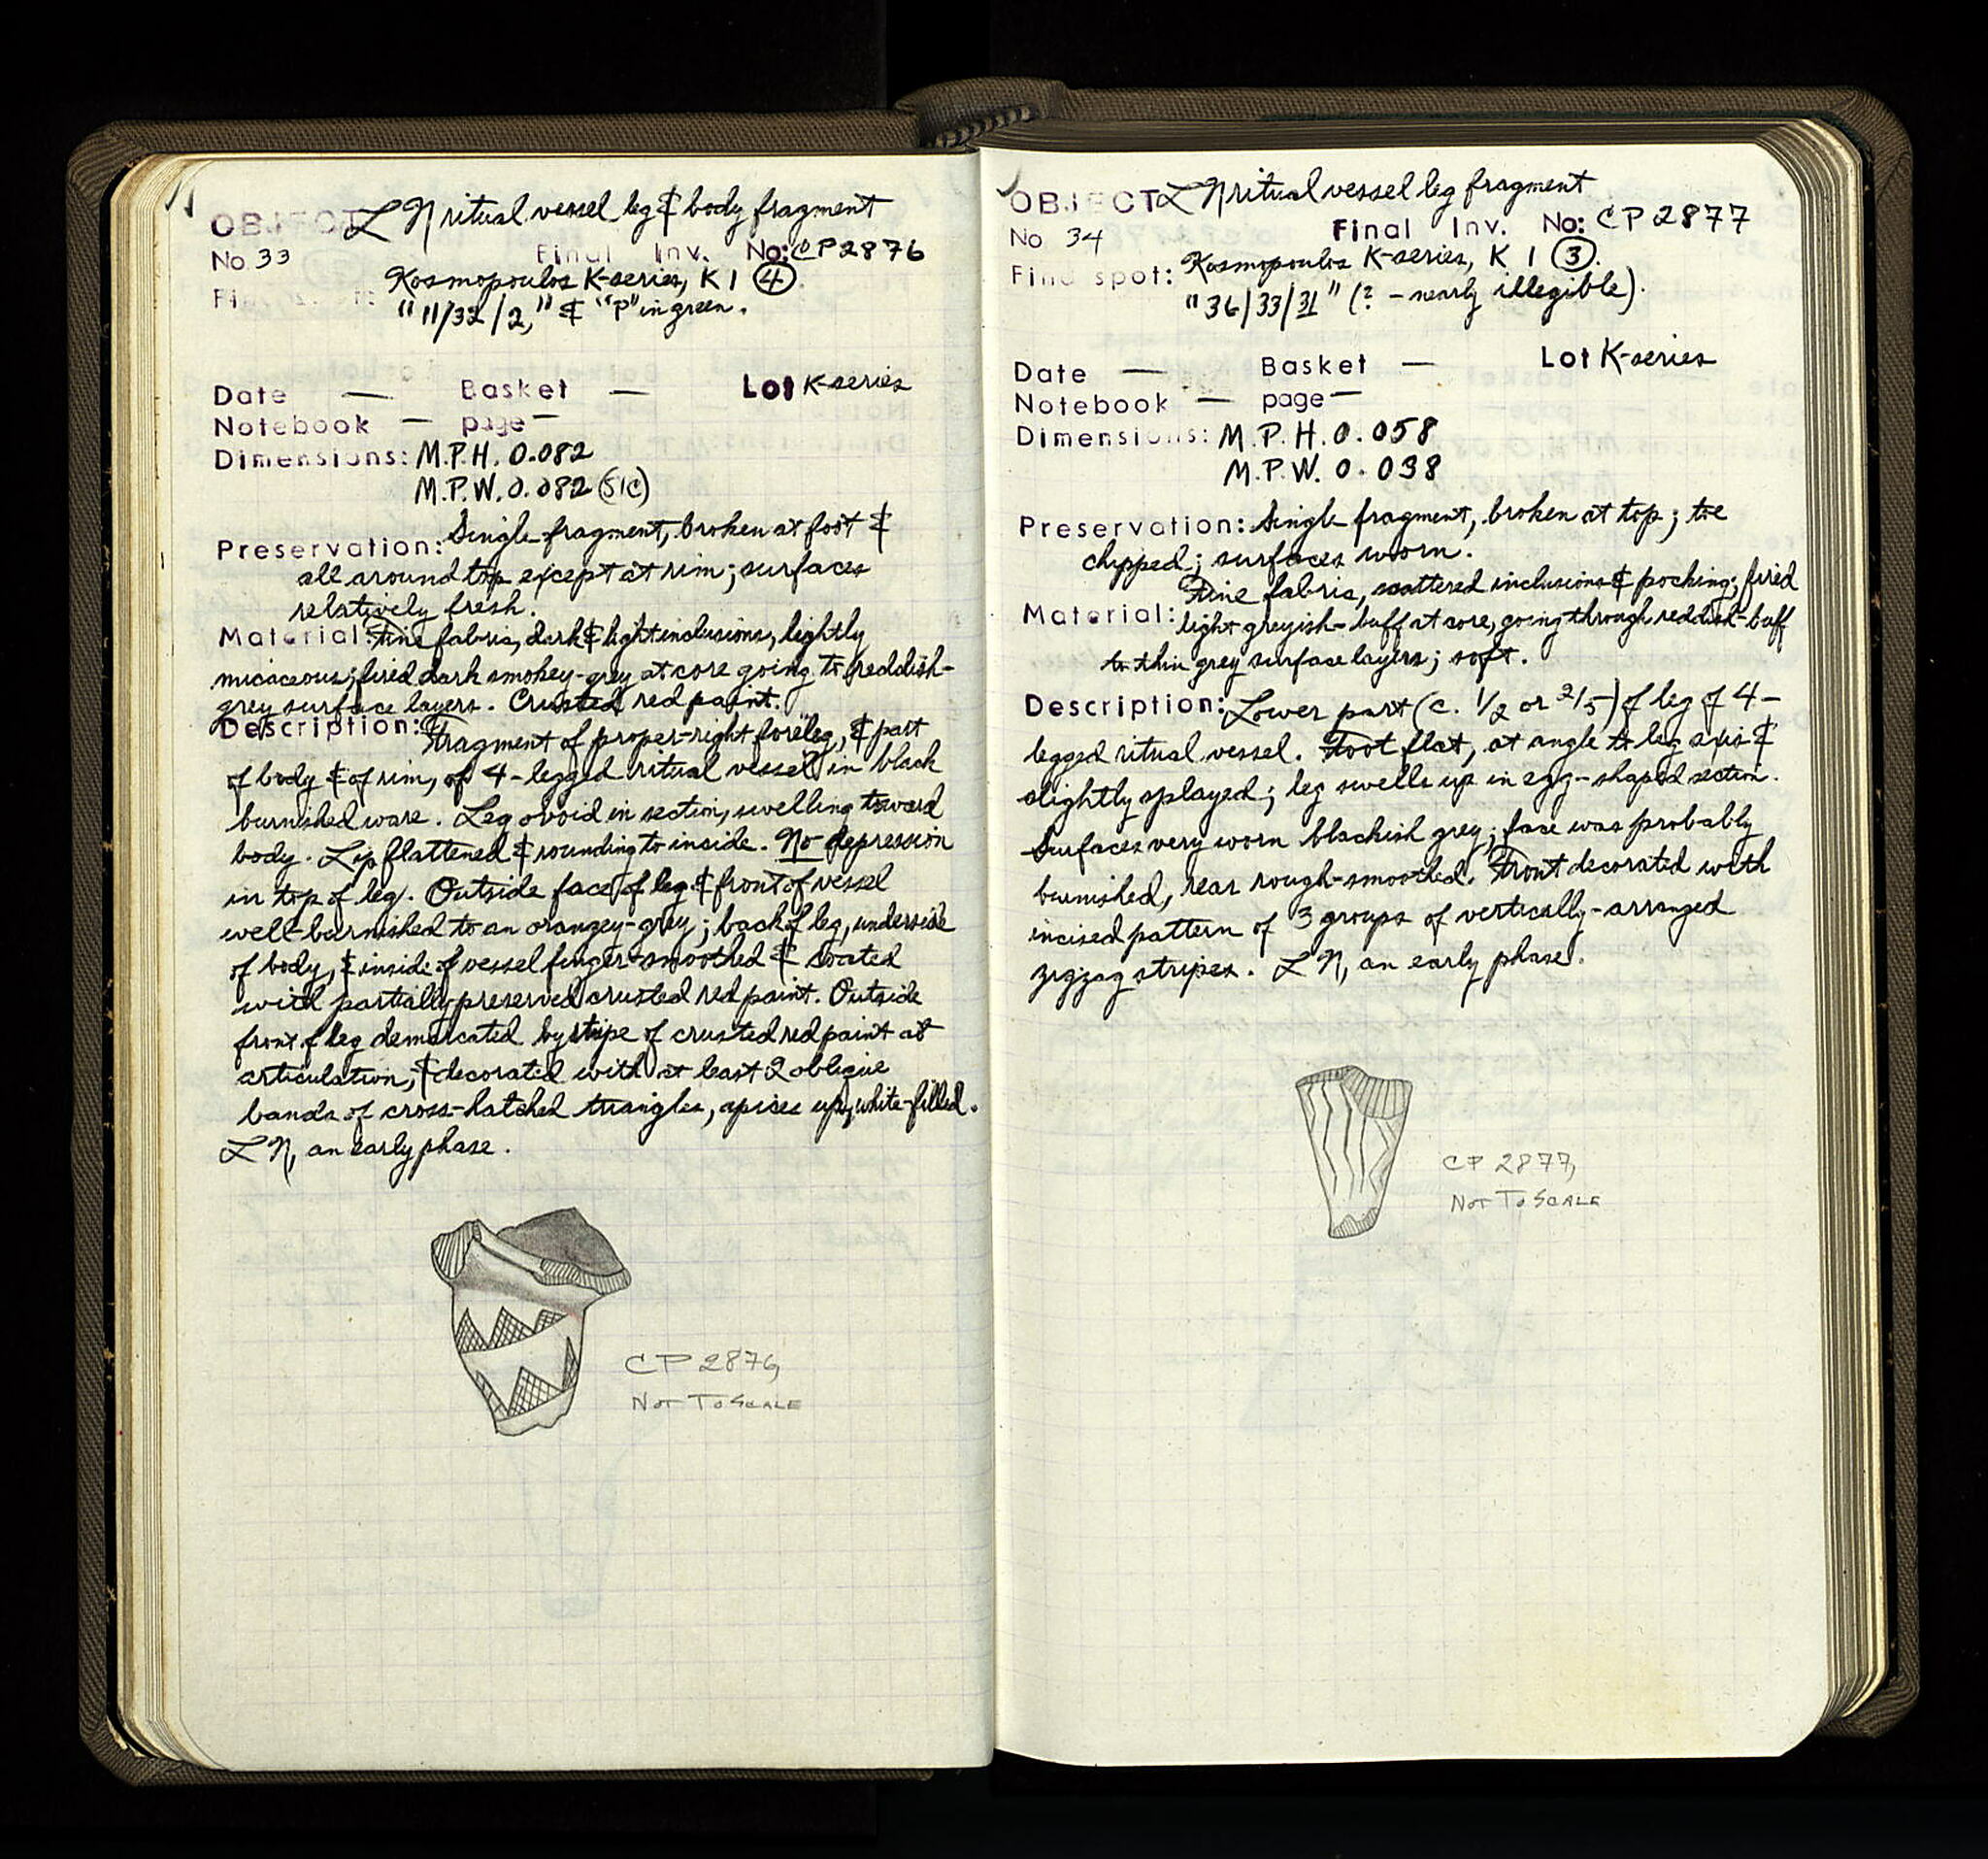 OBJECT LN ritual vessel leg & body fragment
No. 33 Final Inv. No: CP 2876
Kosmopoulos K-series, K 1 ④.
"11/32/2," & "P" in green.
Date — Basket — Lot K-series
Notebook — page —
Dimensions: M.P.H. 0.082
M.P.W. 0.082 (SIC)
Preservation: Single fragment, broken at foot &
all around top except at rim; surfaces
relatively fresh.
Material: Fine fabric, dark & light inclusions, lightly
micaceous; fired dark smokey-grey at core going to reddish-
grey surface layers. Crusted red paint.
Description: Fragment of proper-right foreleg, & part
of body & of rim, of 4-legged ritual vessel in black
burnished ware. Leg ovoid in section, swelling toward
body. Lip flattened & rounding to inside. No depression
in top of leg. Outside face of leg & front of vessel
well-burnished to an orangey-grey; back of leg, underside
of body, & inside of vessel finger-smoothed & coated
with partially preserved crusted red paint. Outside
front of leg demarcated by stripe of crusted red paint at
articulation, & decorated with at least 2 oblique
bands of cross-hatched triangles, apices up, white-filled.
LN, an early phase.
CP 2876,
NOT TO SCALE
OBJECT LN ritual vessel leg fragment
No 34 Final Inv. No: CP 2877
Find spot: Kosmopoulos K-series, K 1 ③.
"36/33/31" (? – nearly illegible).
Date — Basket — Lot K-series
Notebook — page —
Dimensions: M.P.H. 0.058
M.P.W. 0.038
Preservation: Single fragment, broken at top; toe
chipped; surfaces worn.
Fine fabric, scattered inclusions & pocking; fired
Material: light greyish-buff at core, going through reddish-buff
to thin grey surface layers; soft.
Description: Lower part (c. 1/2 or 2/5) of leg of 4-
legged ritual vessel. Foot flat, at angle to leg axis &
slightly splayed; leg swells up in egg-shaped section.
Surfaces very worn blackish grey; face was probably
burnished, rear rough-smoothed. Front decorated with
incised pattern of 3 groups of vertically-arranged
zigzag stripes. LN, an early phase.
CP 2877,
NOT TO SCALE